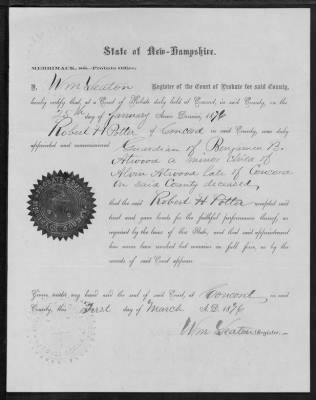 State of New-Hampshire.
MERRIMACK, SS.—Probate Office.
I, Wm Yeaton Register of the Court of Probate for said County,
hereby certify that, at a Court of Probate duly holden at Concord, in said County, on the
25th day of January Anno Domini, 1876
Robert H Potter of Concord in said County, was duly
appointed and commissioned Guardian of Benjamin B.
Atwood a minor child of
Alvin Atwood late of Concord
in said County deceased,
that the said Robert H Potter accepted said
trust and gave bonds for the faithful performance thereof, as
required by the laws of this State, and that said appointment
has never been revoked but remains in full force, as by the
records of said Court appears.
Given under my hand and the seal of said Court, at Concord in said
County, this First day of March A. D. 1876
Wm Yeaton Register.